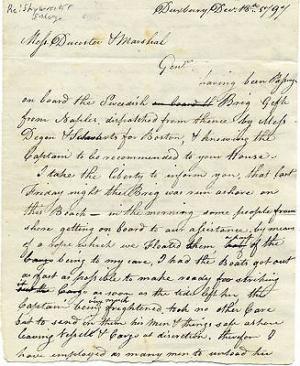 Re: Shipwreck &
Salvage
Duxbury Decr. 18th 1797
Mess. Ducoster & Marshal
Gentn.
having been Passenger
on board the Swedish Brig Gefle
from Naples, dispatched from thence by Mess
Degen & for Boston, & knowing the
Captain to be recommended to your House.
I take the liberty to inform you, that last
Friday night the Brig was run ashore on
this Beach — in the morning some people from
shore getting on board to our assistance, by means
of a rope which we floated them of the
Cargo being to my care, I had the Boats got out
as fast as possible to make ready for striking
as soon as the tide left her, the
Captain being very much frightened, took no other Care
but to send in them his Men & things safe ashore
leaving vessell & Cargo at discretion, therefore I
have employed as many men to unload her